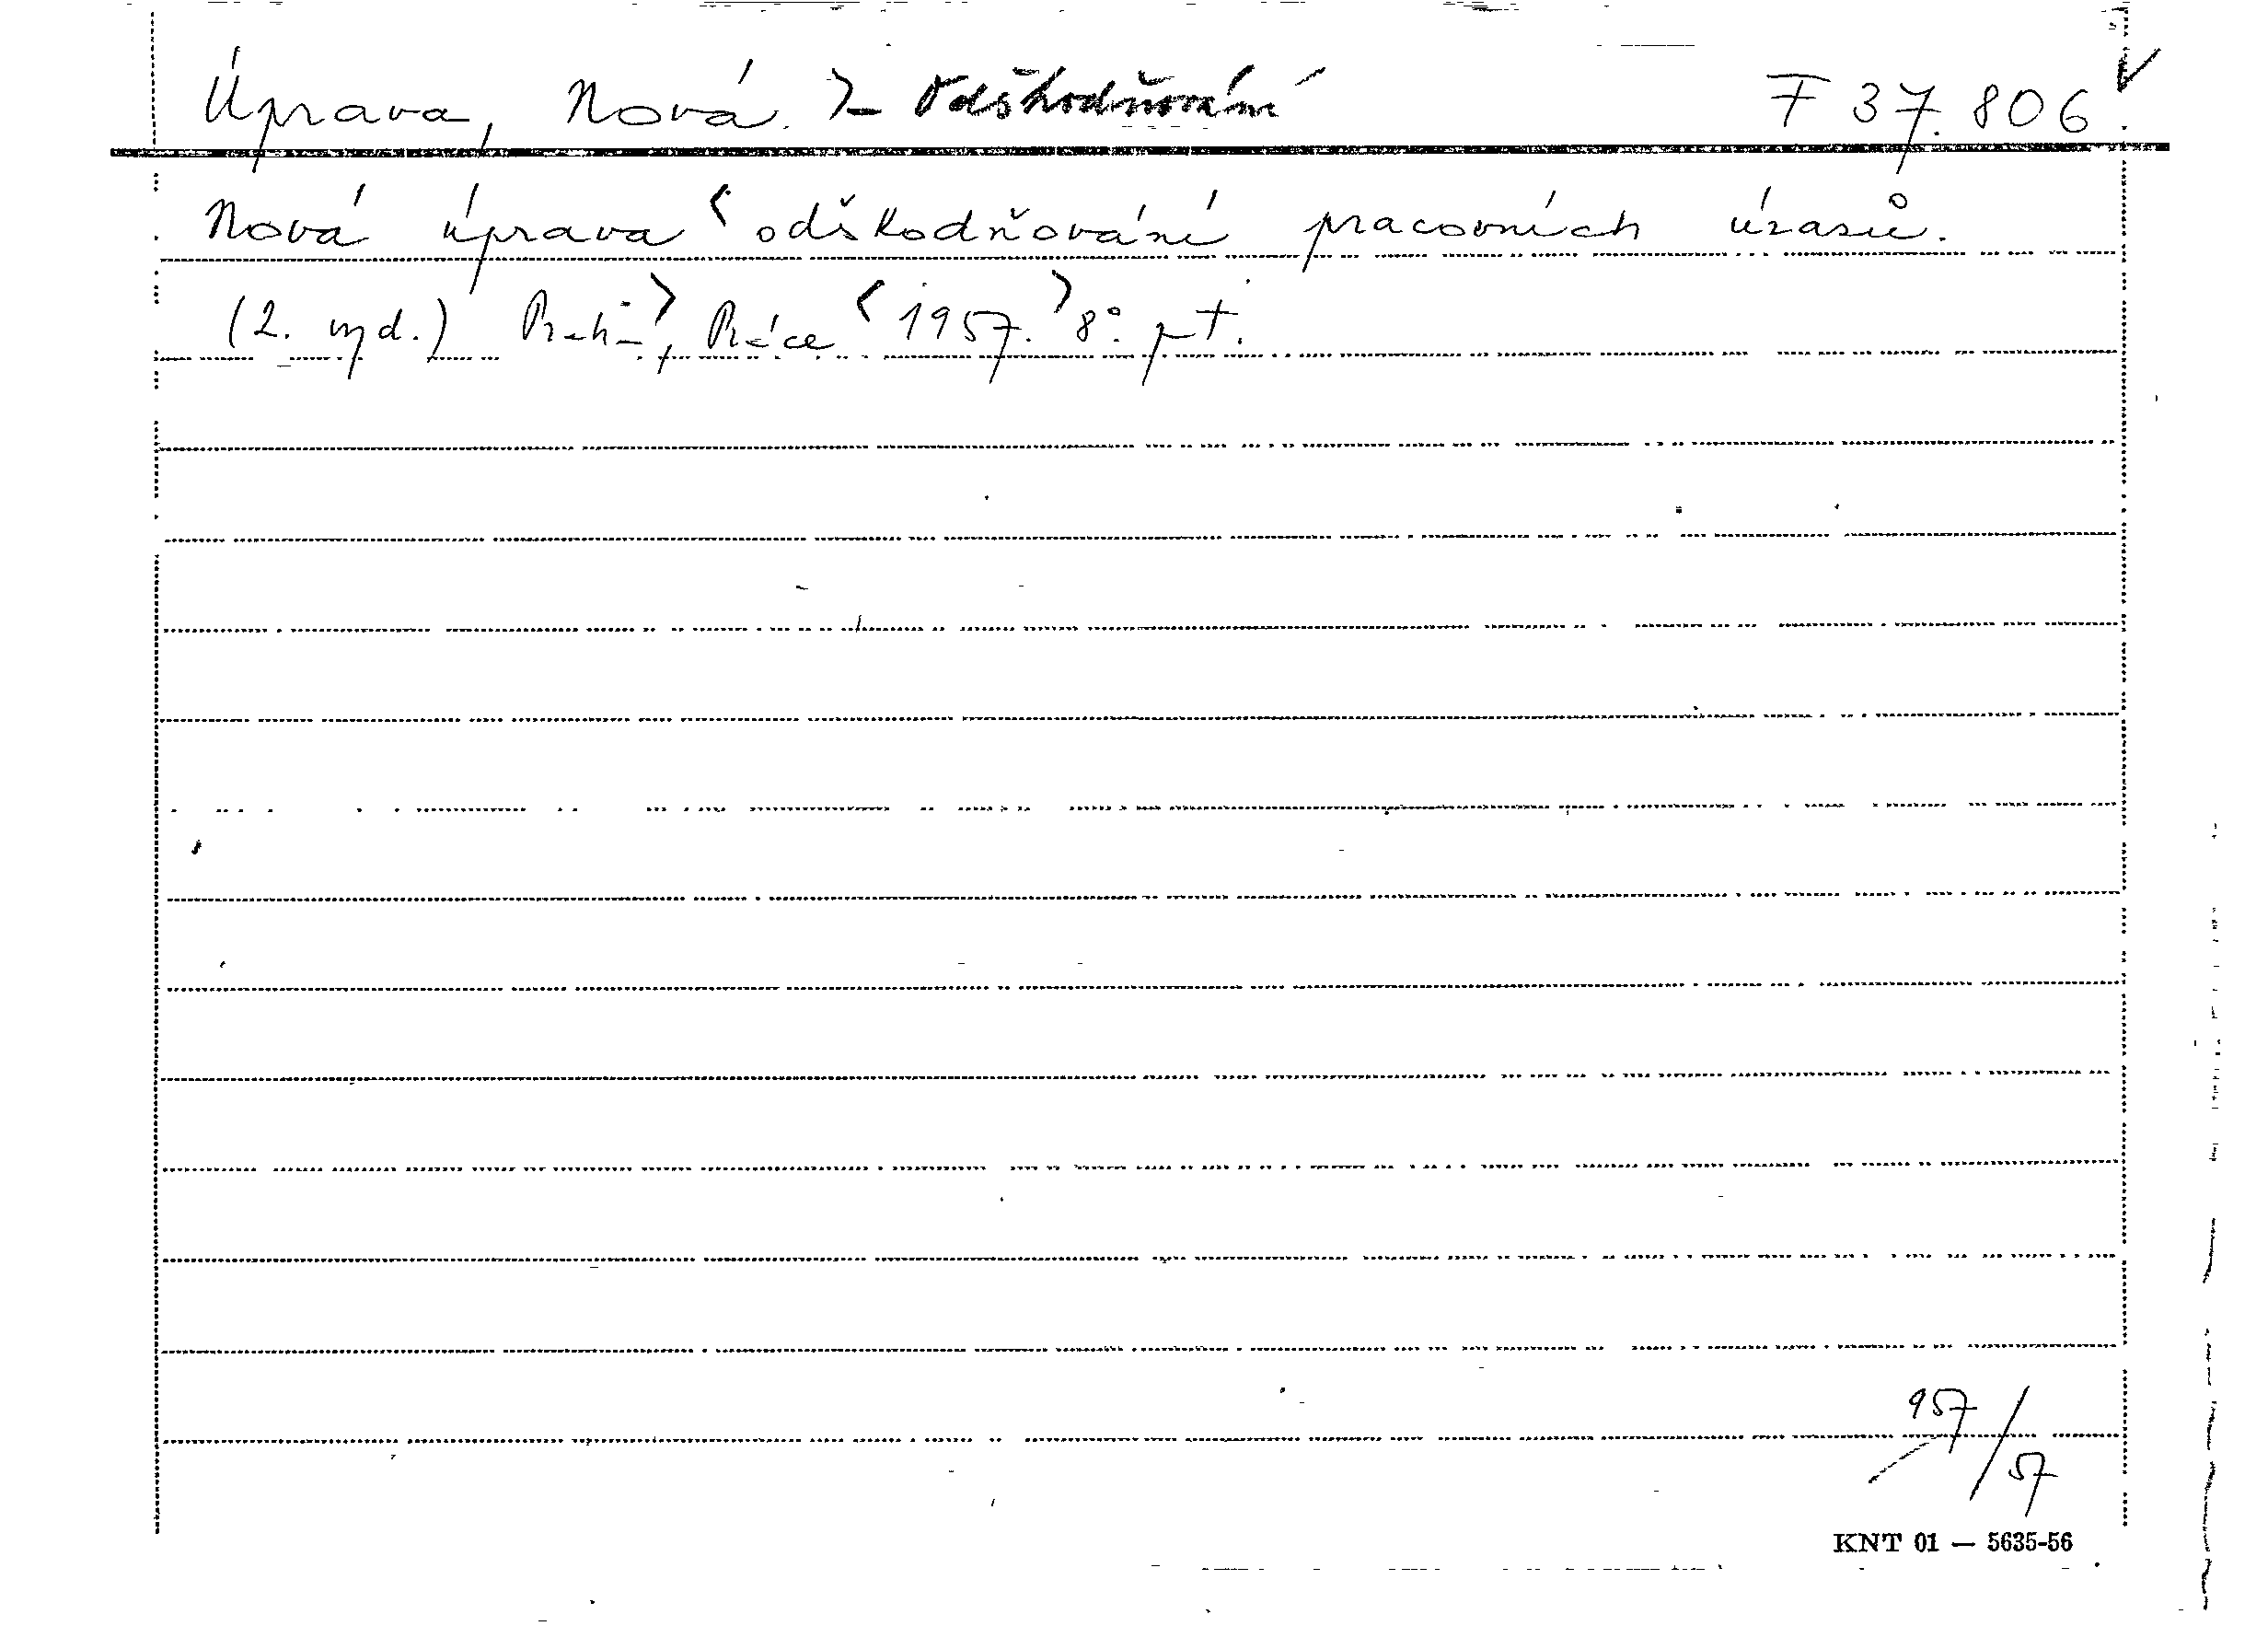 Úprava, Nová. >- Odškodňování F 37.806 V
Nová úprava < odškodňování pracovních úrazů.
(2. vyd.) Praha >, Práce < 1957. > 8°. pt.
957/57
KNT 01 — 5635-56